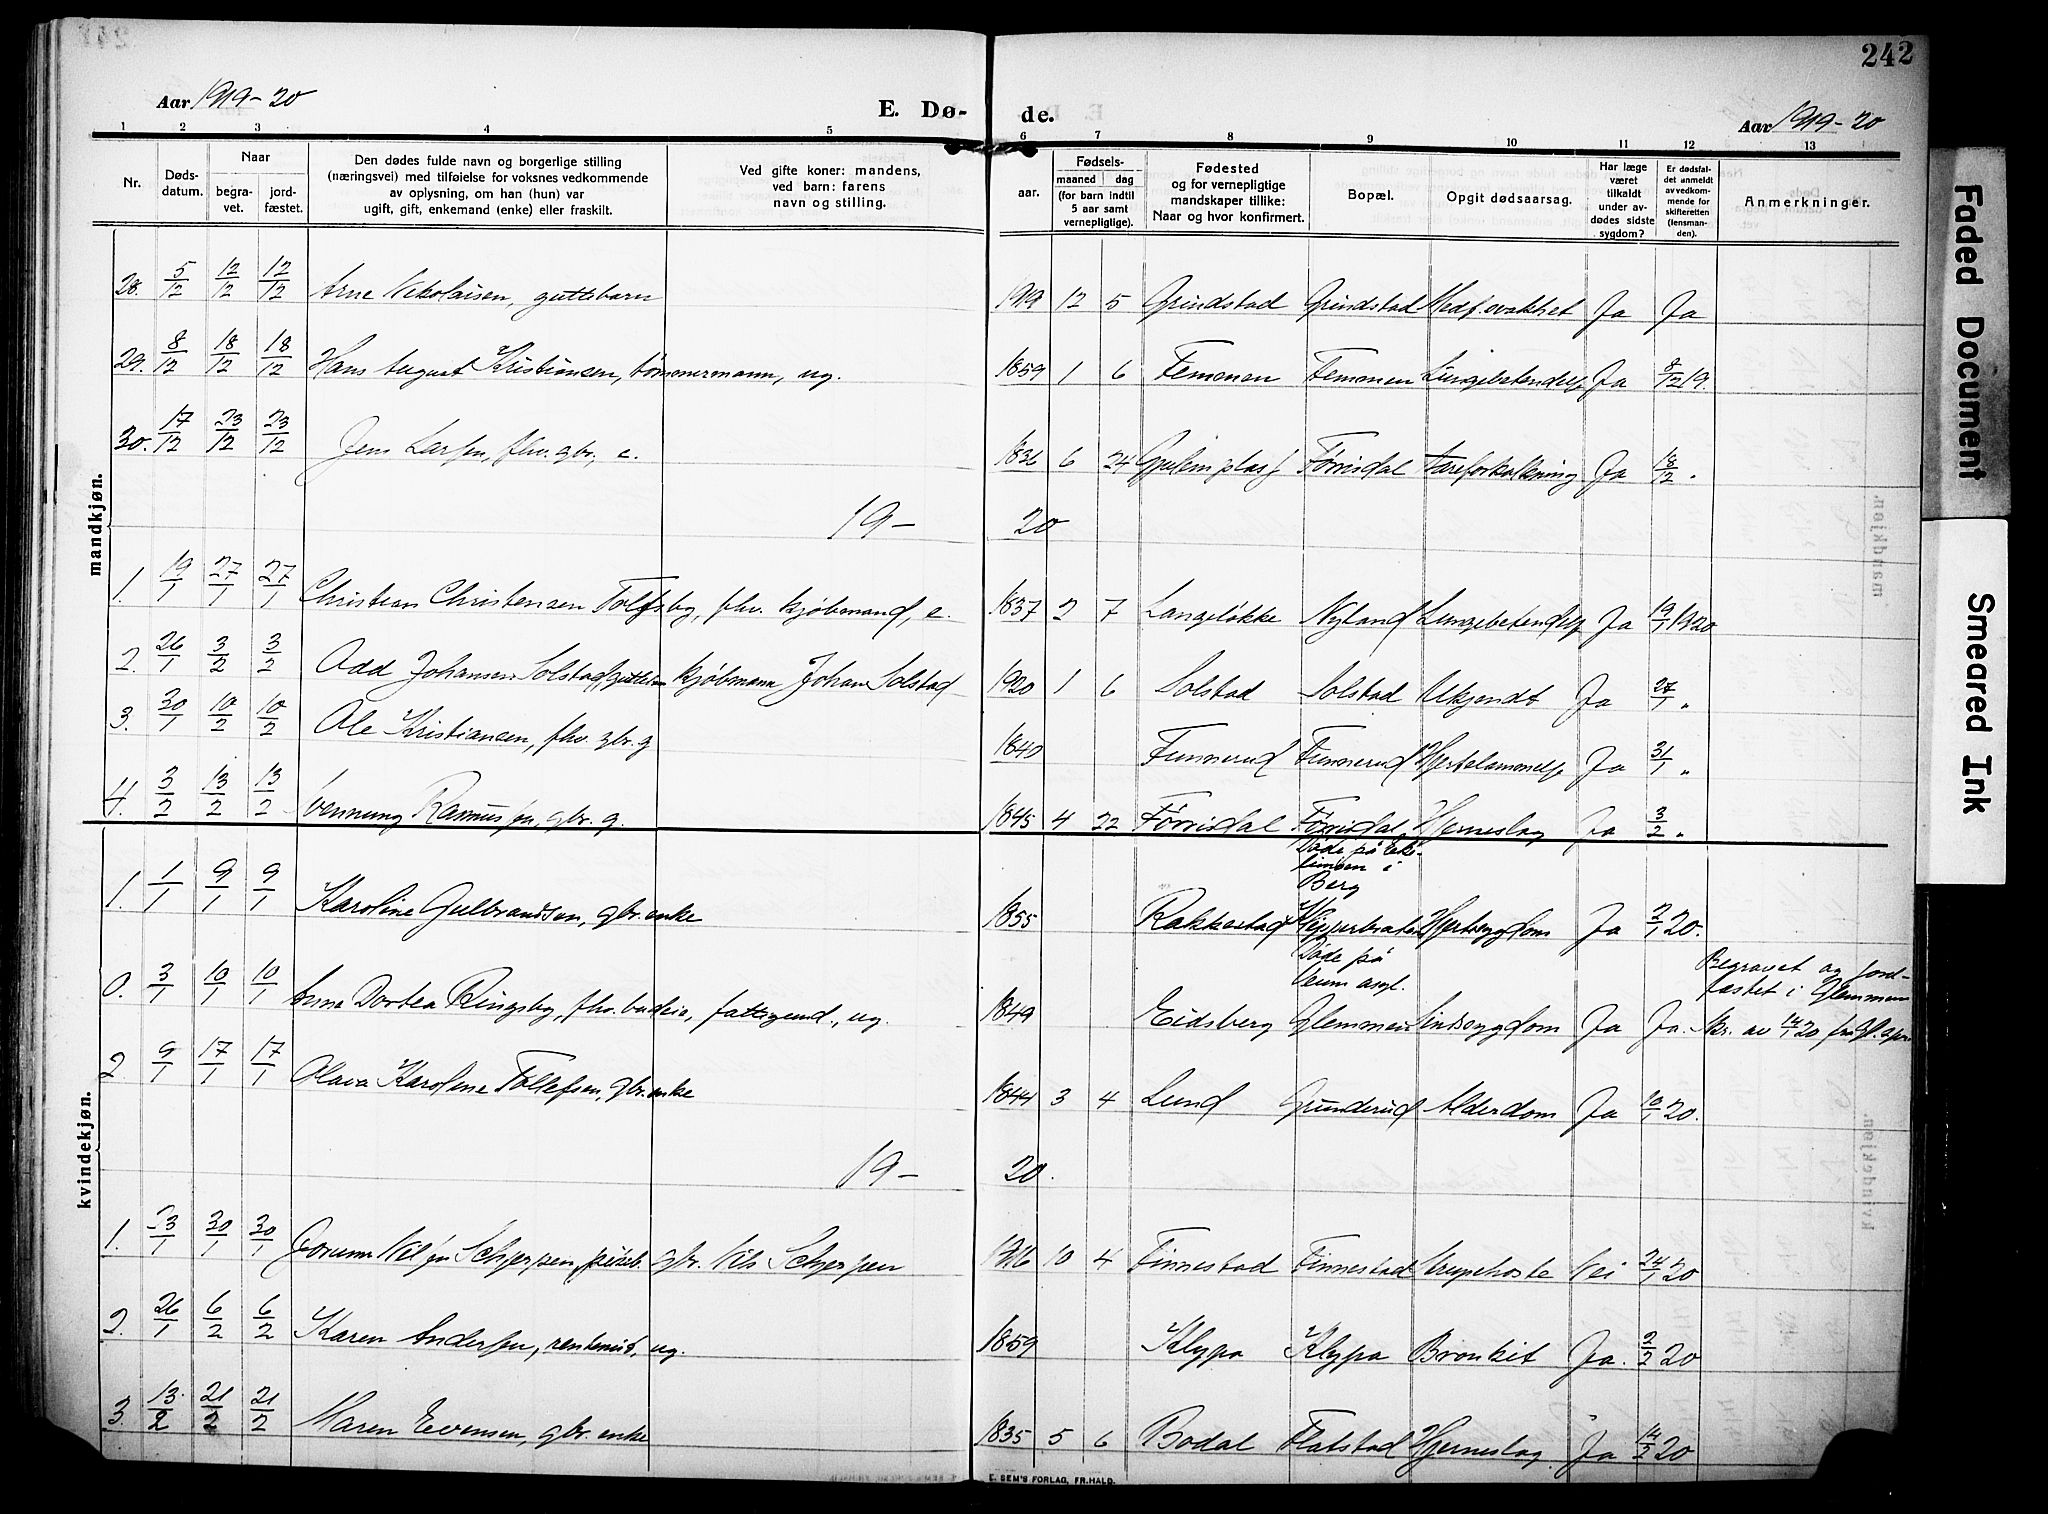 242
Aar 1919-20
E. Dø-
de.
Aar 1919-20
1 2 3 4 5 6 7 8 9 10 11 12 13
Nr.
Døds-
datum.
Naar
begra-
vet.
jord-
fæstet.
Den dødes fulde navn og borgerlige stilling
(næringsvei) med tilføielse for voksnes vedkommende
av oplysning, om han (hun) var
ugift, gift, enkemand (enke) eller fraskilt.
Ved gifte koner: mandens,
ved barn: farens
navn og stilling.
Fødsels-
aar.
maaned dag
(for barn indtil
5 aar samt
vernepligtige).
Fødested
og for vernepligtige
mandskaper tillike:
Naar og hvor konfirmert.
Bopæl.
Opgit dødsaarsag.
Har læge
været
tilkaldt
under av-
dødes sidste
sygdom?
Er dødsfal-
det anmeldt
av vedkom-
mende for
skifteretten
(lensman-
den).
Anmerkninger.
mandkjøn.
28. 5/12 12/12 12/12 Arne Nikolaisen, guttebarn 1919 12 5 Grindstad Grindstad Medf. svakhet Ja Ja
29. 8/12 18/12 18/12 Hans August Kristiansen, tømmermann, ug. 1859 1 6 Temmen Temmen Lungebetendelse Ja 8/12 19.
30. 17/12 23/12 23/12 Jens Larsen, fhv. gbr., e. 1836 6 24 Førrisdal Aareforkalkning Ja 18/12 "
19- 20
1. 19/1 27/1 27/1 Christian Christensen Tolfsby, fhv. kjøbmand, e. 1837 2 7 Langeløkke Nyland Lungebetendelse Ja 19/1 1920
2. 26/1 3/2 3/2 Odd Johansen Solstad, guttebarn kjøbmann Johan Solstad 1920 1 6 Solstad Solstad Ukjendt Ja 27/1 "
3. 30/1 10/2 10/2 Ole Kristiansen, fhv. gbr. g 1840 Funnerud Funnerud Hjertelammelse Ja 31/1 "
4. 3/2 13/2 13/2 Rasmussen, gbr. g. 1845 4 22 Førrisdal Førrisdal Hjerneslag Ja 3/2 "
kvindekjøn.
Døde på
i
Berg
1. 1/1 9/1 9/1 Karoline Gulbrandsen, gbr. enke 1855 Rakkestad Hjertesygdom Ja 2/1 20.
Døde på
Veum asyl.
Begravet og jord-
fæstet i Glemmen
0. 3/1 10/1 10/1 Anna Dortea Ringsby, fhv. budeie, fattigund., ug. 1849 Eidsberg Glemmen Sindssygdom Ja Ja. Skr. av 14/1 20 fra
2 9/1 17/1 17/1 Olava Karoline Tollefsen, gbr. enke 1844 3 4 Lund Grunderud Alderdom Ja 10/1 20.
19- 20.
1. 23/1 30/1 30/1 Jorunn Nilsen Schjerpen, pikeb. gbr. Nils Schjerpen 1916 10 4 Finnestad Finnestad Strupehoste Nei 24/1 20
2. 26/1 6/2 6/2 Karen Andersen, rentenist, ug. 1859 Klypa Klypa Bronkit Ja. 2/2 20
3. 13/2 21/2 21/2 Maren Evensen, gbr. enke 1835 5 6 Bodal Flatstad Hjerneslag. Ja 14/2 20
E. SEM'S FORLAG, FR.HALD.
Faded Document
Smeared Ink